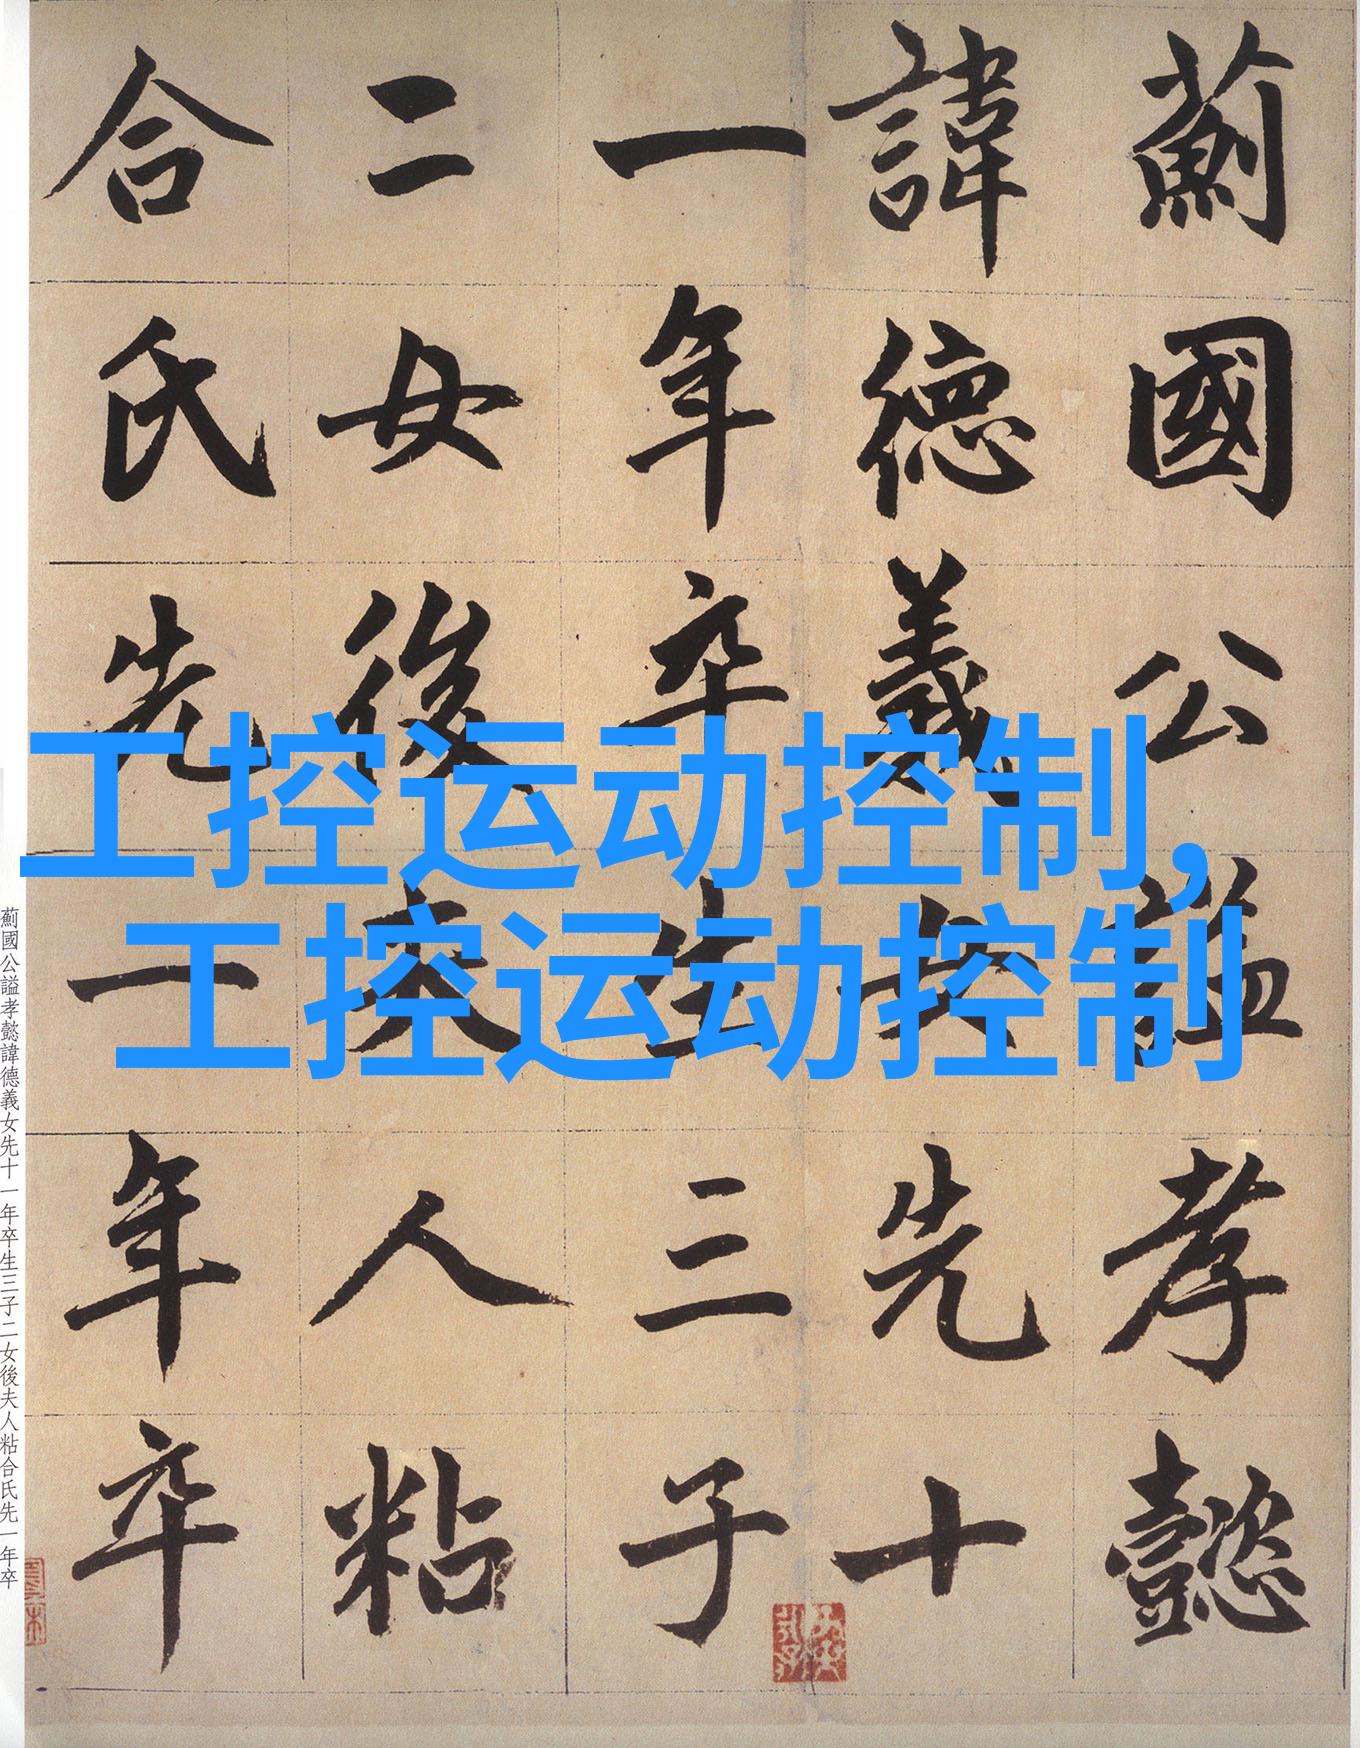 蓟國公謚孝懿
諱德義女先十
一年卒生三子
二女後夫人粘
合氏先一年卒
工控运动控制,
工控运动控制
薊國公謚孝懿諱德義女先十一年卒生三子二女後夫人粘合氏先一年卒